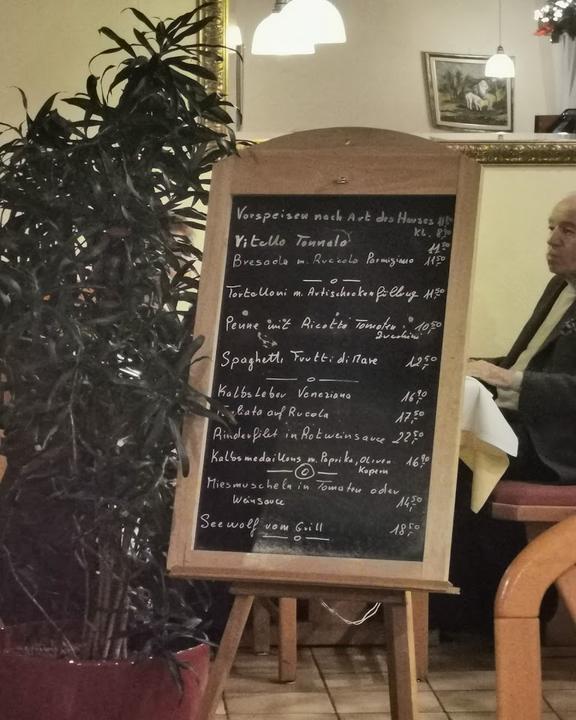 Vorspeisen nach Art des Hauses 11,50
Kl. 8,50
Vitello Tonnato 11,50
Bresaola m. Ruccola Parmigiano 11,50
Tortelloni m. Artischockenfüllung 11,50
Penne mit Ricotta Tomaten 10,50
Zucchini
Spaghetti Frutti di Mare 12,50
Kalbsleber Veneziana 16,90
auf Rucola 17,50
Rinderfilet in Rotweinsauce 22,50
Kalbsmedaillons m. Paprika, Oliven 16,90
Kapern
Miesmuscheln in Tomaten oder
Weinsauce 14,50
Seewolf vom Grill 18,50